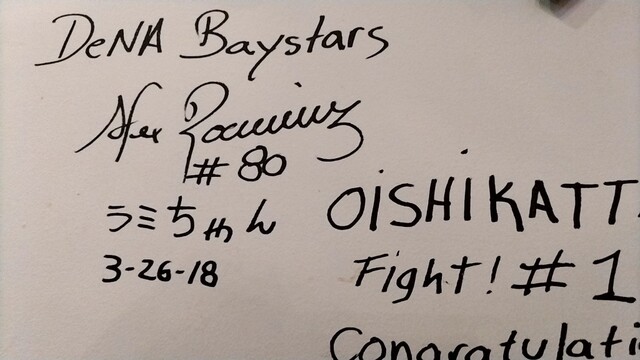 DeNA Baystars
Alex Ramirez
#80
ラミちゃん
3-26-18
OiSHiKATT
Fight! #1
Congratulati